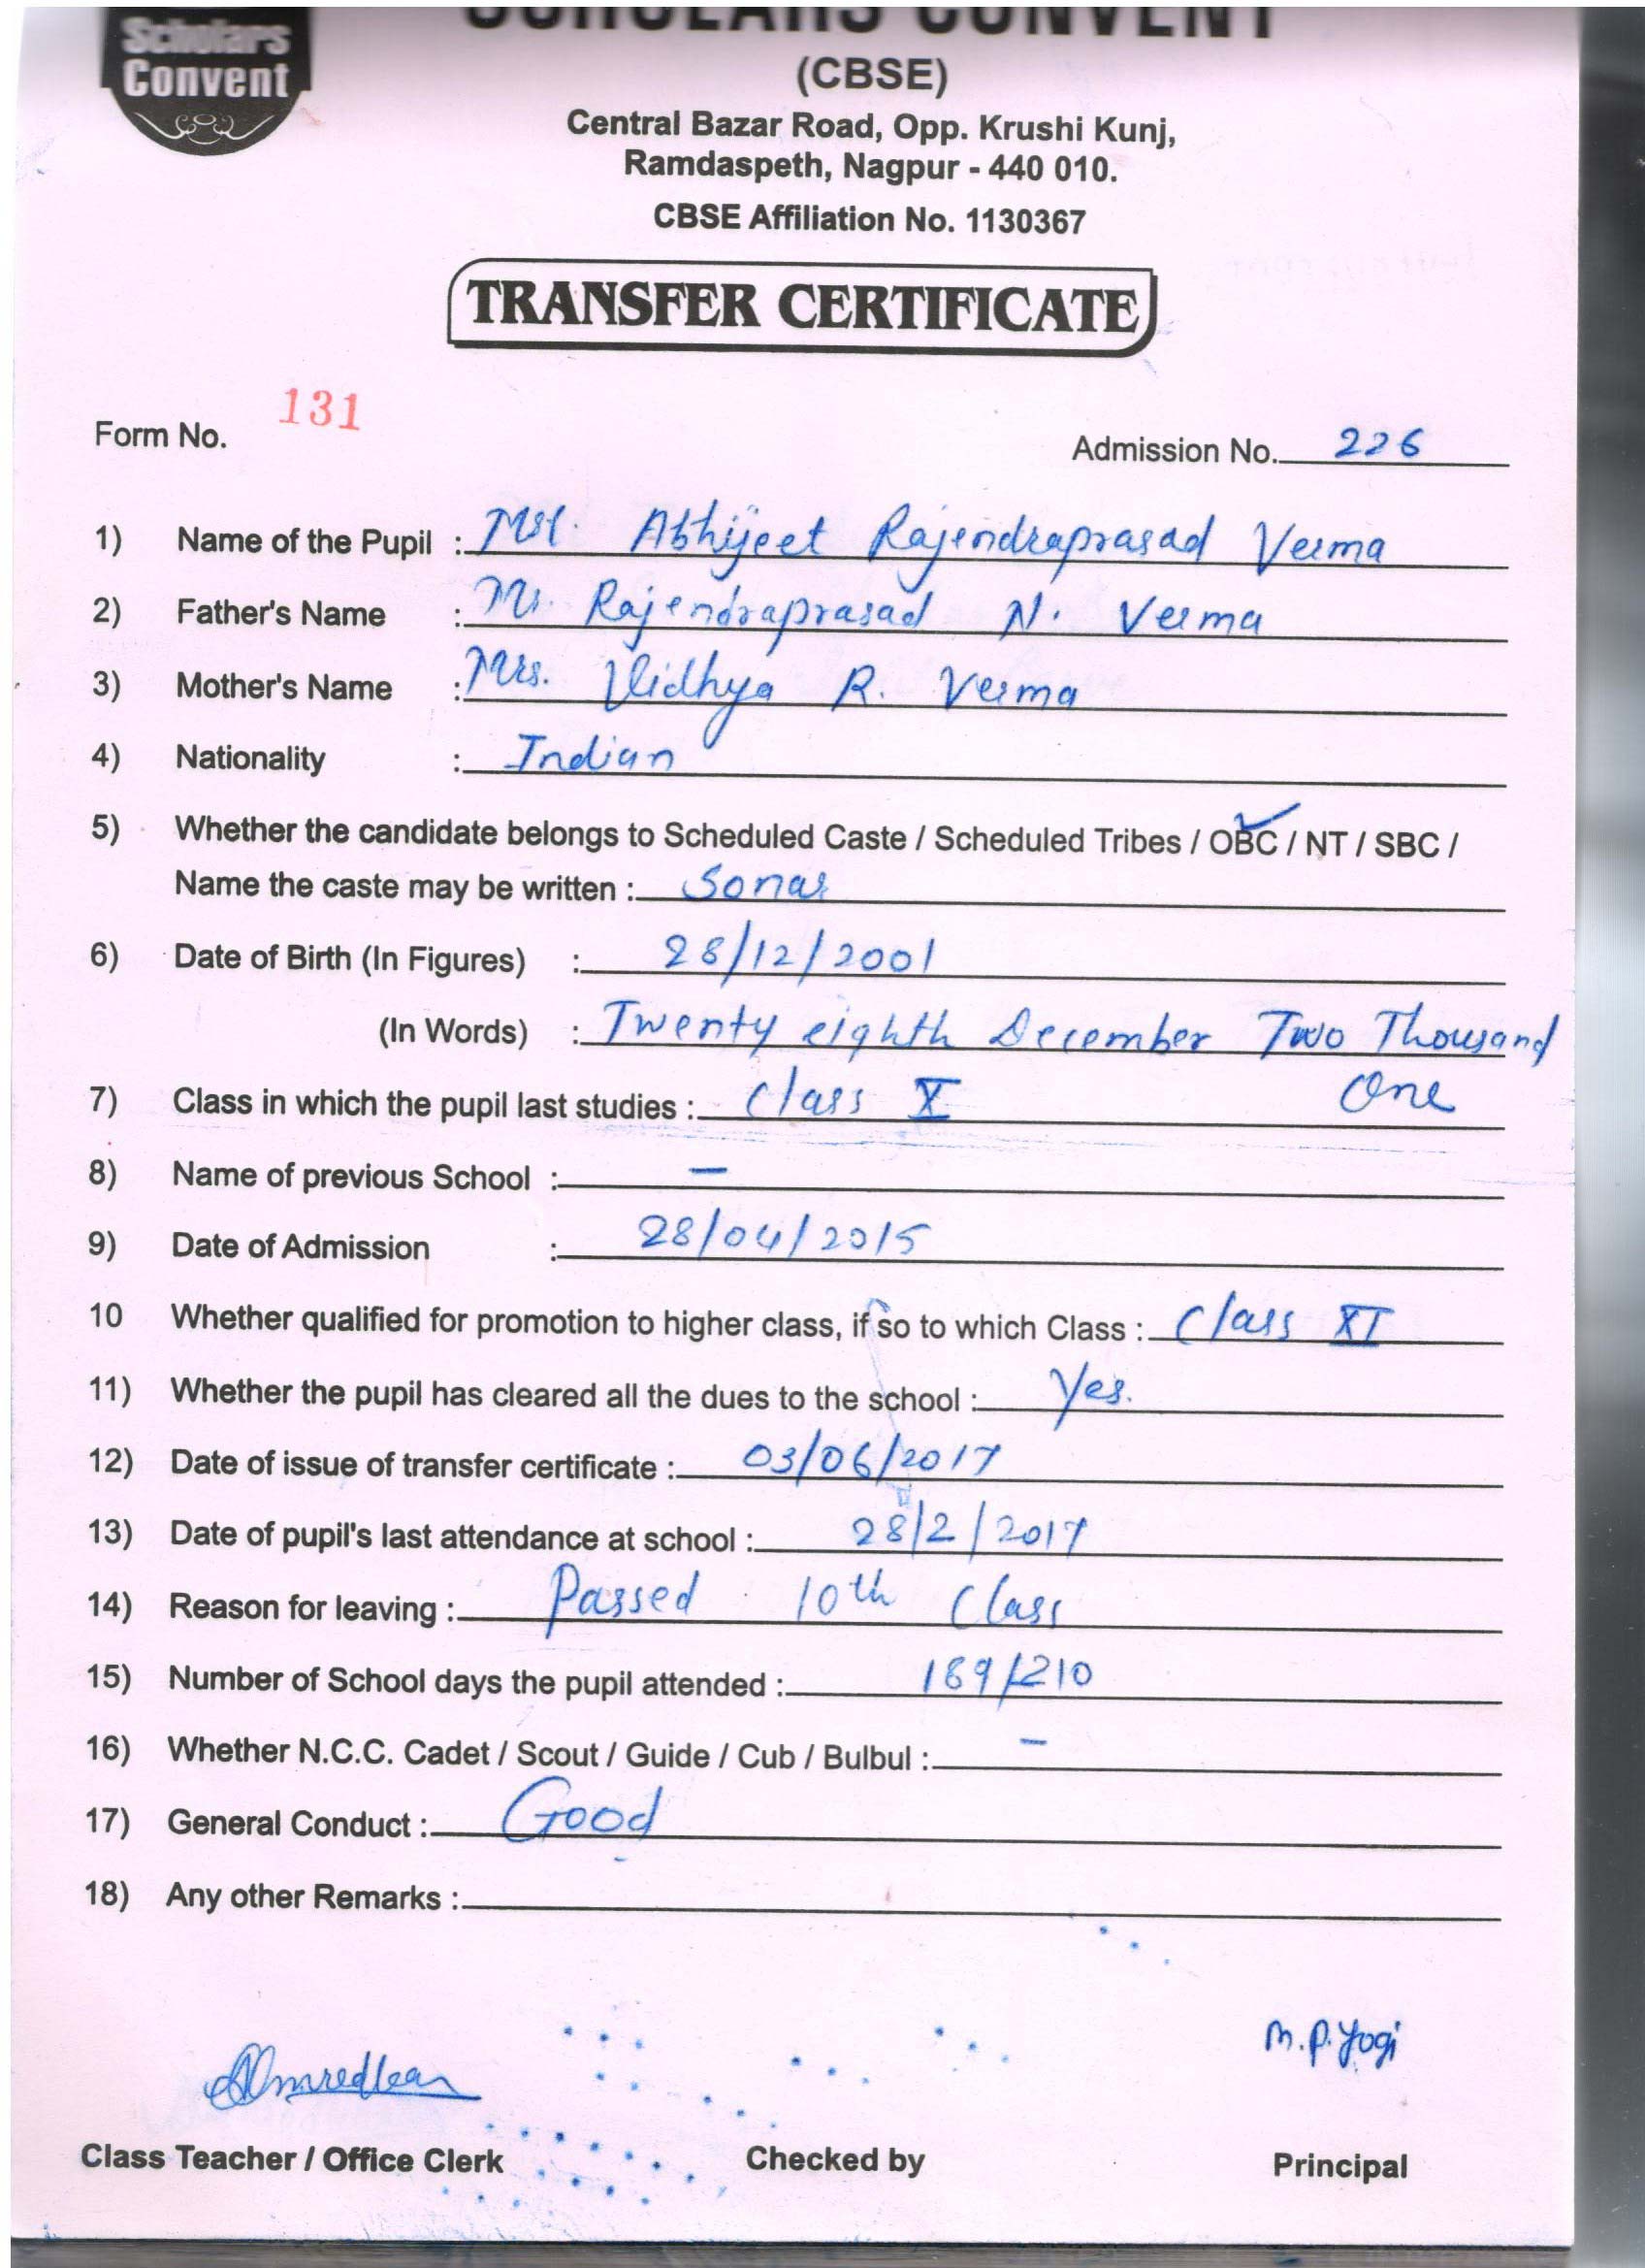 SCHOLARS CONVENT
Scholars
Convent
(CBSE)
Central Bazar Road, Opp. Krushi Kunj,
Ramdaspeth, Nagpur - 440 010.
CBSE Affiliation No. 1130367
TRANSFER CERTIFICATE
Form No. 131 Admission No. 226
1) Name of the Pupil : Mst. Abhijeet Rajendraprasad Verma
2) Father's Name : Mr. Rajendraprasad N. Verma
3) Mother's Name : Mrs. Vidhya R. Verma
4) Nationality : Indian
5) Whether the candidate belongs to Scheduled Caste / Scheduled Tribes / OBC / NT / SBC /
Name the caste may be written : Sonar
6) Date of Birth (In Figures) : 28/12/2001
(In Words) : Twenty eighth December Two Thousand
One
7) Class in which the pupil last studies : Class X
8) Name of previous School : –
9) Date of Admission : 28/04/2015
10 Whether qualified for promotion to higher class, if so to which Class : Class XI
11) Whether the pupil has cleared all the dues to the school : Yes.
12) Date of issue of transfer certificate : 03/06/2017
13) Date of pupil's last attendance at school : 28/2/2017
14) Reason for leaving : Passed 10th Class
15) Number of School days the pupil attended : 189/210
16) Whether N.C.C. Cadet / Scout / Guide / Cub / Bulbul : –
17) General Conduct : Good
18) Any other Remarks :
M.P.Yogi
Class Teacher / Office Clerk Checked by Principal